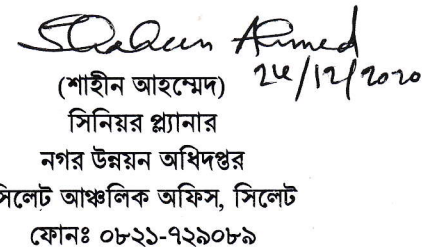 Shaheen Ahmed
24/12/2020
(শাহীন আহম্মেদ)
সিনিয়র প্ল্যানার
নগর উন্নয়ন অধিদপ্তর
সিলেট আঞ্চলিক অফিস, সিলেট
ফোনঃ ০৮২১-৭২৯০৮৯